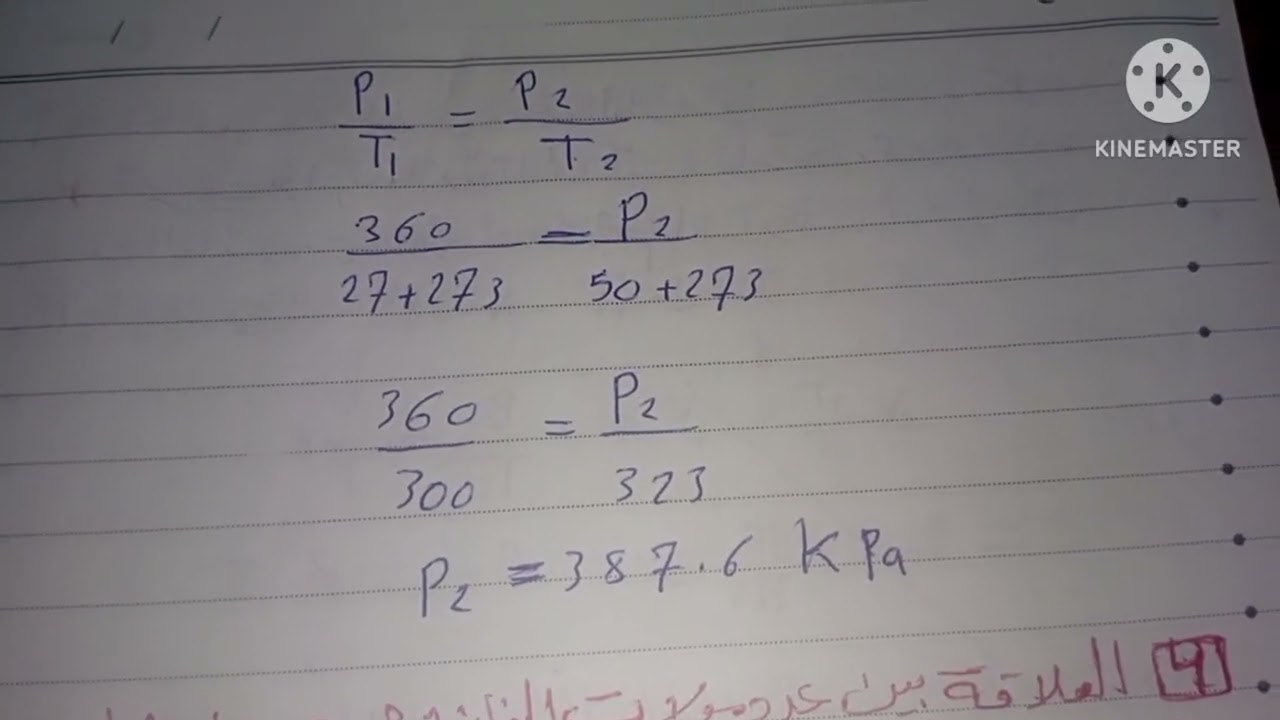 KINEMASTER
P1/T1 = P2/T2
360/27+273 = P2/50+273
360/300 = P2/323
P2 = 387.6 KPa
9 العلاقة بين عدد مولات